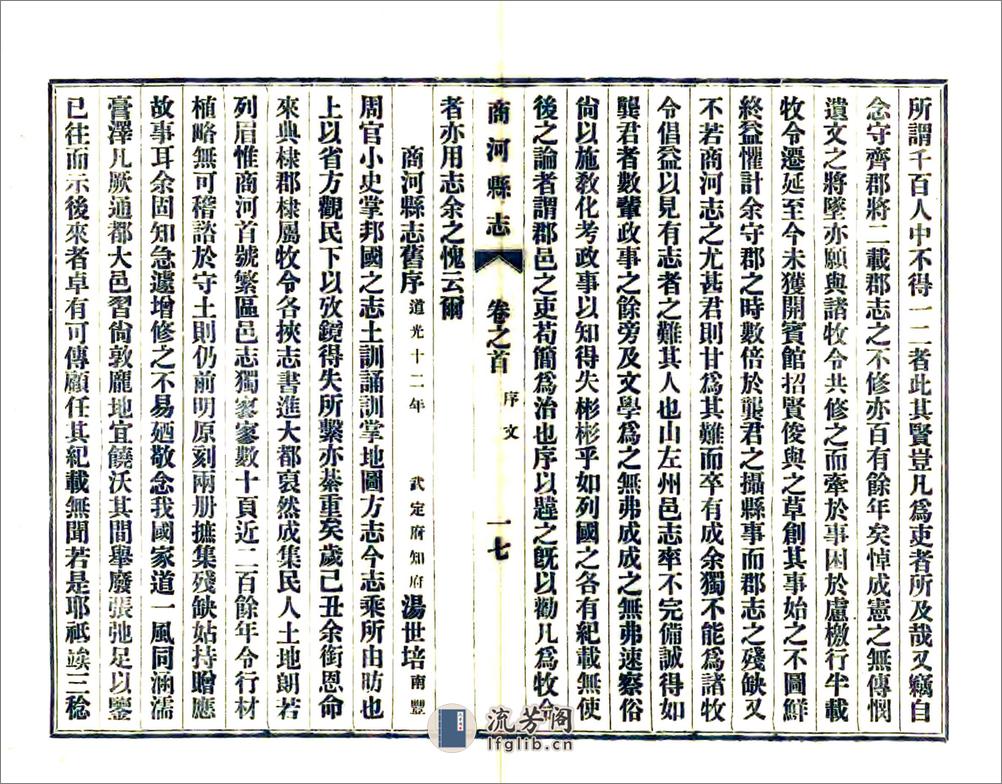 所謂千百人中不得一二者此其賢豈凡爲吏者所及哉又竊自
念守齊郡將二載郡志之不修亦百有餘年矣悼成憲之無傳憫
遺文之將墜亦願與諸牧令共修之而牽於事困於慮檄行半載
牧令遷延至今未獲開賓館招賢俊與之草創其事始之不圖鮮
終益懼計余守郡之時數倍於龔君之攝縣事而郡志之殘缺又
不若商河志之尤甚君則甘爲其難而卒有成余獨不能爲諸牧
令倡益以見有志者之難其人也山左州邑志率不完備誠得如
龔君者數輩政事之餘旁及文學爲之無弗成成之無弗速察俗
尙以施敎化考政事以知得失彬彬乎如列國之各有紀載無使
後之論者謂郡邑之吏苟簡爲治也序以韙之旣以勸凡爲牧令
者亦用志余之愧云爾
商河縣志 卷之首 序文 一七
商河縣志舊序 道光十二年 武定府知府 湯世培 南豐
周官小史掌邦國之志土訓誦訓掌地圖方志今志乘所由昉也
上以省方觀民下以攷鏡得失所繫亦綦重矣歲己丑余銜恩命
來典棣郡棣屬牧令各挾志書進大都裒然成集民人土地朗若
列眉惟商河首號繁區邑志獨寥寥數十頁近二百餘年令行材
植略無可稽諮於守土則仍前明原刻兩册摭集殘缺姑持贈應
故事耳余固知急遽增修之不易廼敬念我國家道一風同涵濡
膏澤凡厥通都大邑習尙敦龐地宜饒沃其間舉廢張弛足以鑒
已往而示後來者卓有可傳顧任其紀載無聞若是耶祇竢三稔
流芳阁
lfglib.cn